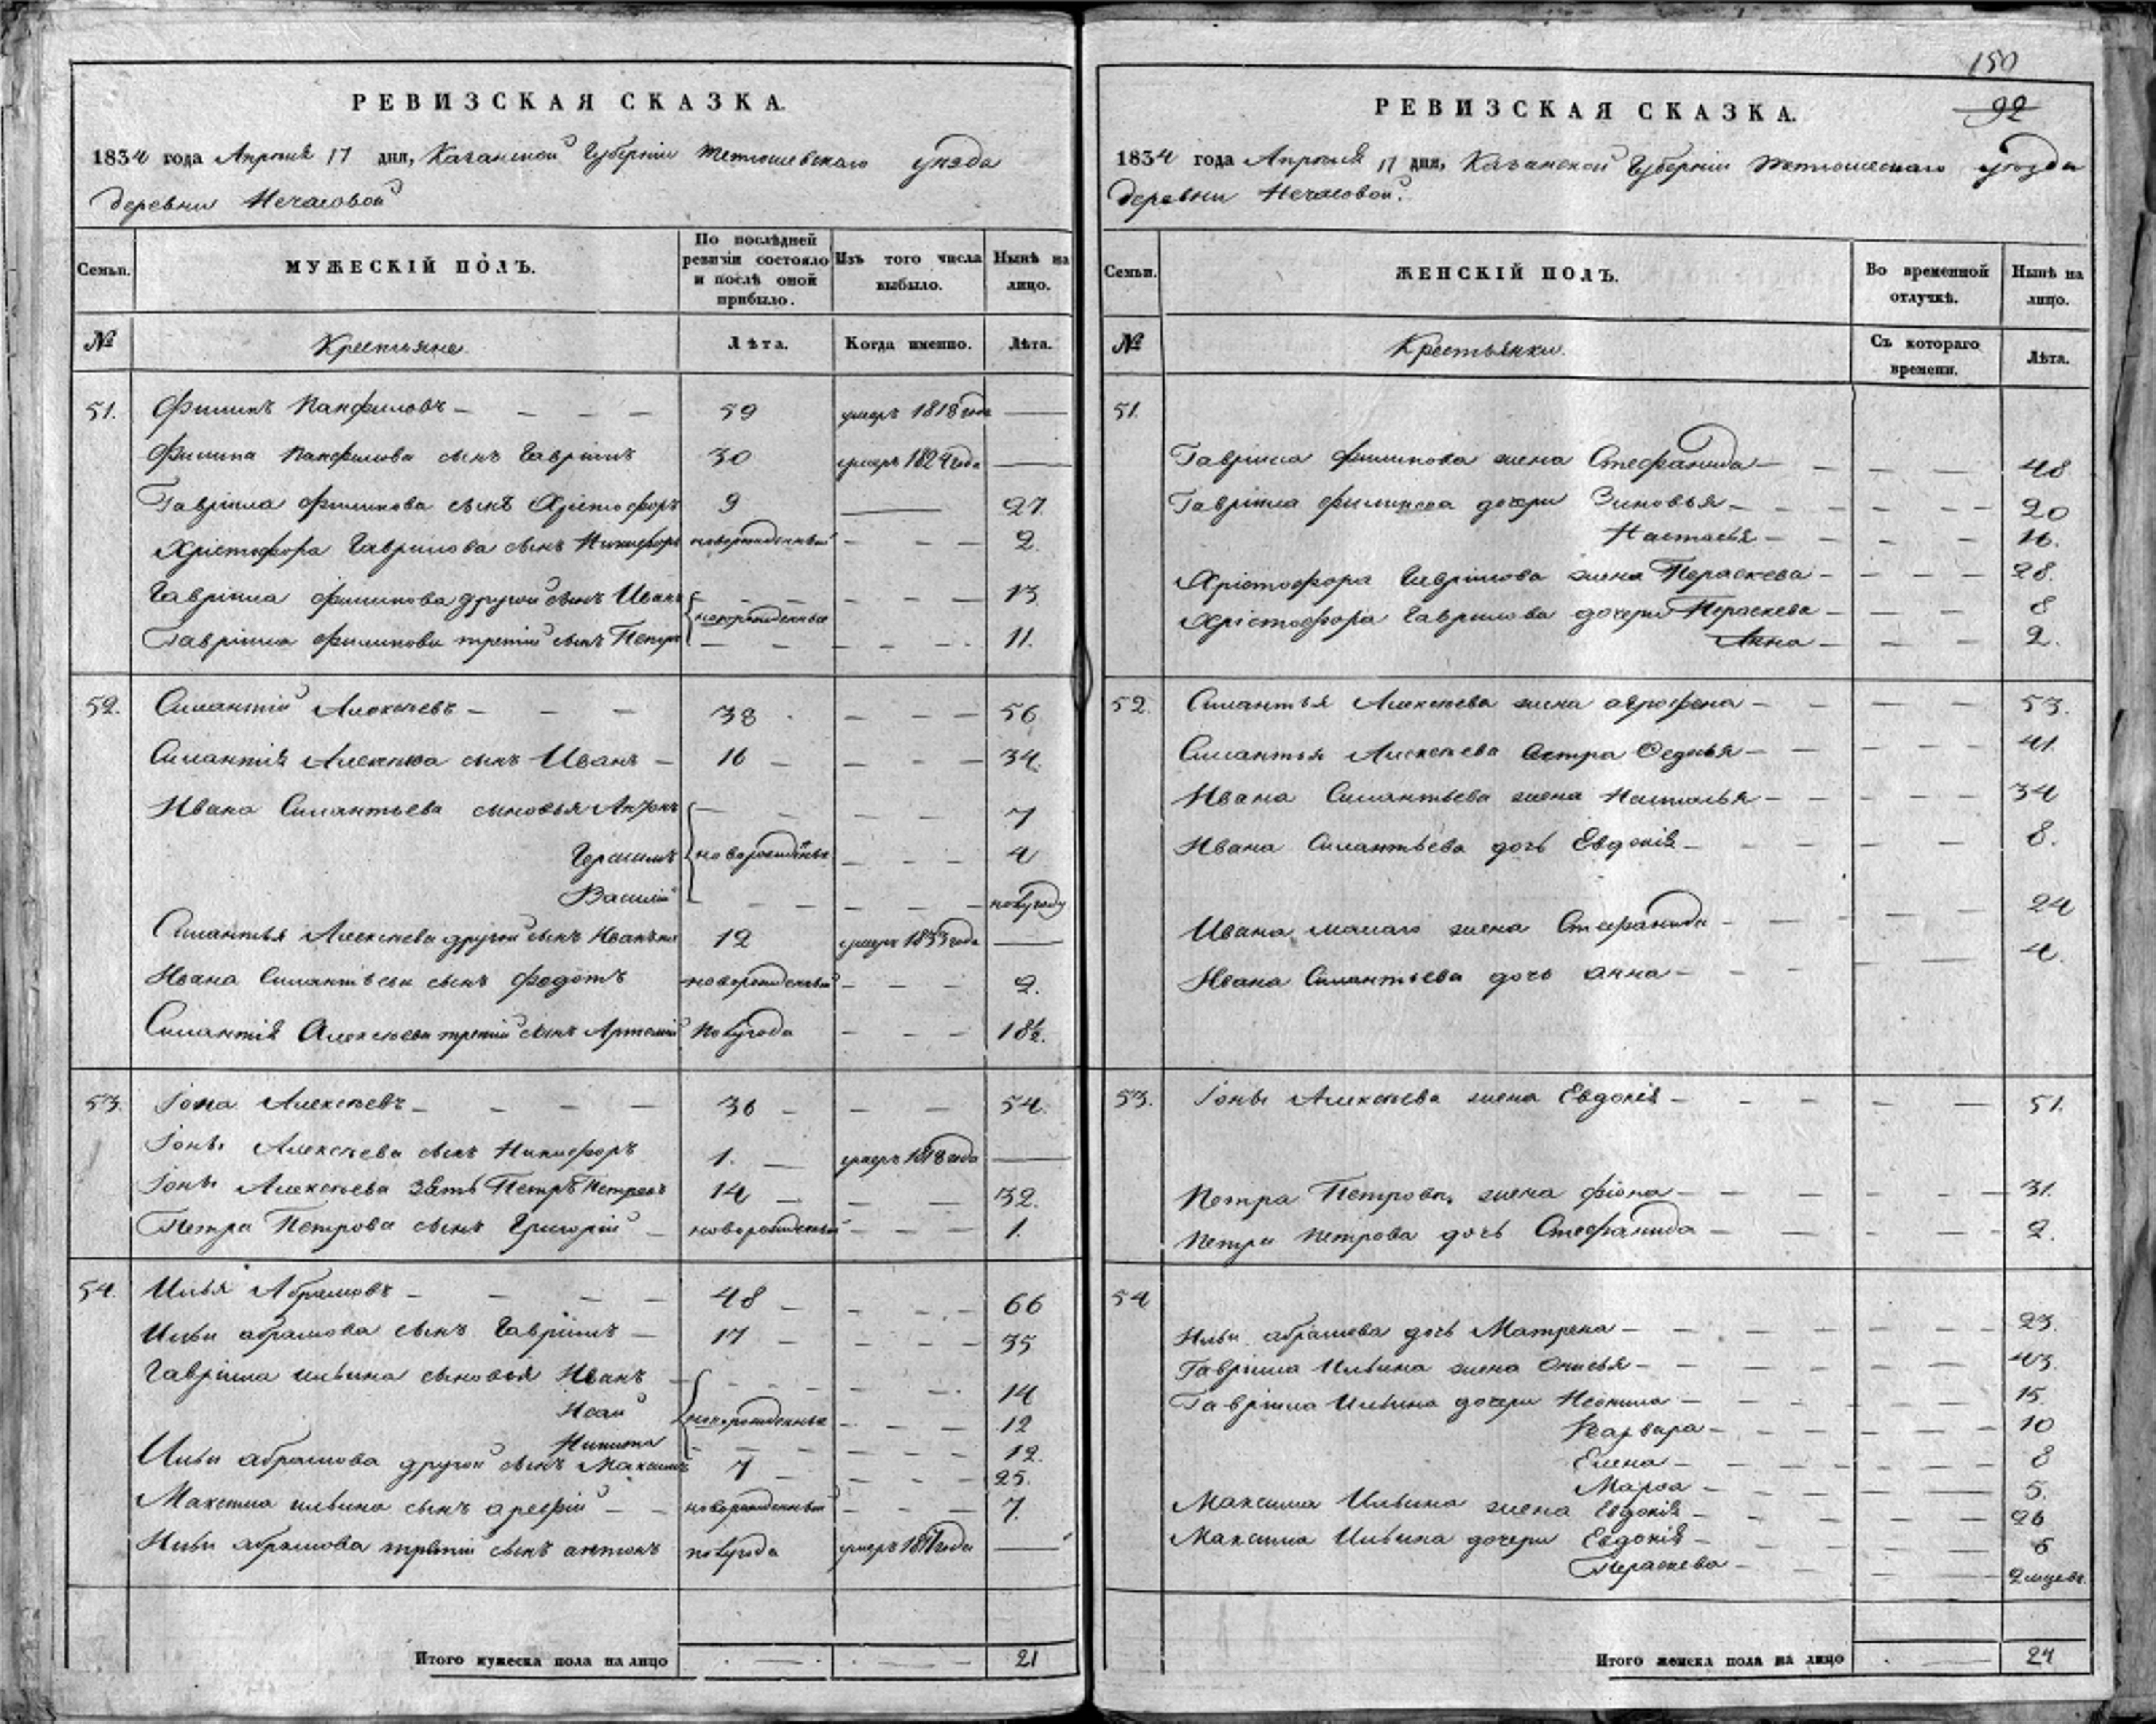 РЕВИЗСКАЯ СКАЗКА.
1834 года Апреля 17 дня, Казанской Губернии Тетюшевскаго уезда
деревни Нечасовой
Семьи. МУЖЕСКІЙ ПОЛЪ. По послѣдней ревизіи состояло и послѣ оной прибыло. Изъ того числа выбыло. Нынѣ на лицо.
№ Крестьяне. Лѣта. Когда именно. Лѣта.
51. Филипъ Панфиловъ 59 умеръ 1818 года
Филипа Панфилова сынъ Гавріилъ 30 умеръ 1824 года
Гавріила Филипова сынъ Христофоръ 9 27.
Христофора Гаврилова сынъ Никифоръ новорожденный 2.
Гавріила Филипова другой сынъ Иванъ 13
новорожденные
Гавріила Филипова третій сынъ Петръ 11.
52. Силантій Алексѣевъ 38 56
Силантія Алексѣева сынъ Иванъ 16 34.
Ивана Силантьева сыновья Антонъ 7
Герасимъ новорожденные 4
Василій полугоду
Силантья Алексѣева другой сынъ Иванъ 12 умеръ 1833 года
Ивана Силантьева сынъ Федотъ новорожденный 2.
Силантія Алексѣева третій сынъ Артемій полугода 18½.
53. Іона Алексѣевъ 36 54.
Іоны Алексѣева сынъ Никифоръ 1. умеръ 1818 года
Іоны Алексѣева зять Петръ Петровъ 14 32.
Петра Петрова сынъ Григорій новорожденный 1.
54. Илья Абрамовъ 48 66
Ильи Абрамова сынъ Гавріилъ 17 35
Гавріила Ильина сыновья Иванъ 14
Исай новорожденные 12
Никита 12.
Ильи Абрамова другой сынъ Максимъ 7 25.
Максима Ильина сынъ Арефій новорожденный 7.
Ильи Абрамова третій сынъ Антонъ полугода умеръ 1817 года
Итого мужеска пола на лицо 21
150
92
РЕВИЗСКАЯ СКАЗКА.
1834 года Апреля 17 дня, Казанской Губерніи Тетюшескаго уезда
деревни Нечасовой.
Семьи. ЖЕНСКІЙ ПОЛЪ. Во временной отлучкѣ. Нынѣ на лицо.
№ Крестьянки. Съ котораго времени. Лѣта.
51.
Гавріила Филипова жена Стефанида 48
Гавріила Филипова дочери Зиновья 20
Настасья 16.
Христофора Гаврилова жена Пераскева 28.
Христофора Гаврилова дочери Пераскева 8
Анна 2.
52. Силантья Алексѣева жена Агрофена 53.
Силантья Алексѣева сестра Федосья 41.
Ивана Силантьева жена Наталья 34
Ивана Силантьева дочь Евдокія 8.
Ивана малаго жена Стефанида 24
Ивана Силантьева дочь Анна 4.
53. Іоны Алексѣева жена Евдокія 51.
Петра Петрова жена Фіона 31.
Петра Петрова дочь Стефанида 2.
54
Ильи Абрамова дочь Матрена 23.
Гавріила Ильина жена Анисья 43.
Гавріила Ильина дочери Неонила 15.
Варвара 10
Елена 8
Марфа 5.
Максима Ильина жена Евдокія 26
Максима Ильина дочери Евдокія 6
Пераскева 2 мцевъ.
Итого женска пола на лицо 24